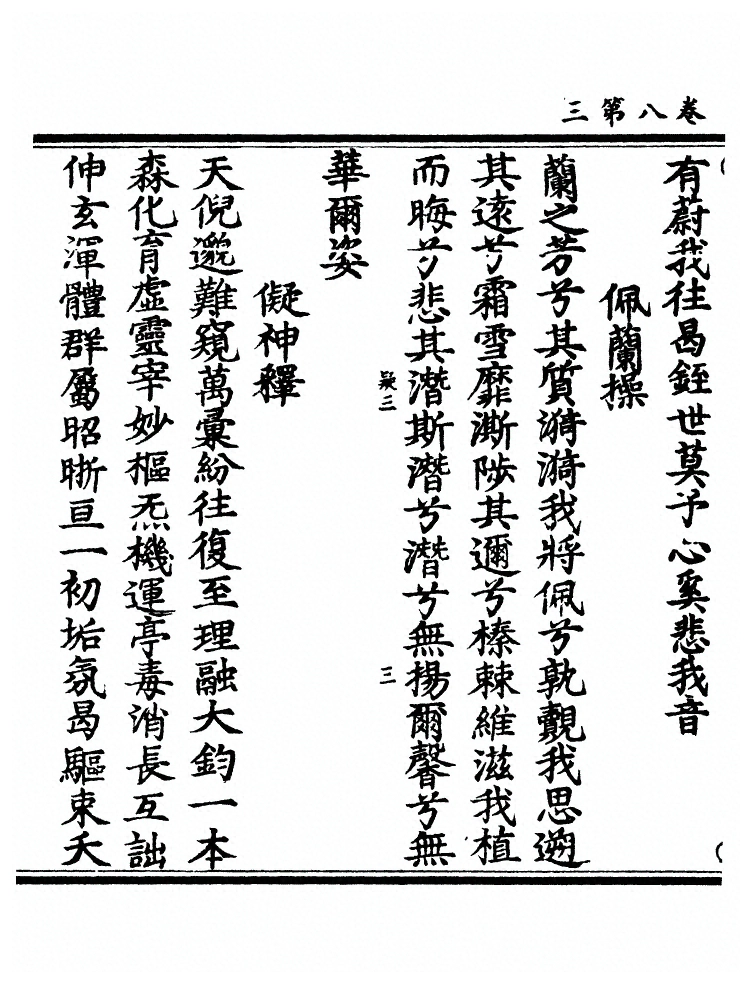 卷八第三
有蔚我往曷銍世莫予心奚悲我音
佩蘭操
蘭之芳兮其質漪漪我將佩兮孰覿我思遡
其遠兮霜雪靡澌陟其邇兮榛棘維滋我植
而晦兮悲其潛斯潛兮潛兮無揚爾馨兮無
疑三
三
華爾姿
儗神釋
天倪邈難窺萬彙紛往復至理融大鈞一本
森化育虛靈宰妙樞炁機運亭毒消長互詘
伸玄渾體群屬昭晣亘一初垢氛曷驅束夭